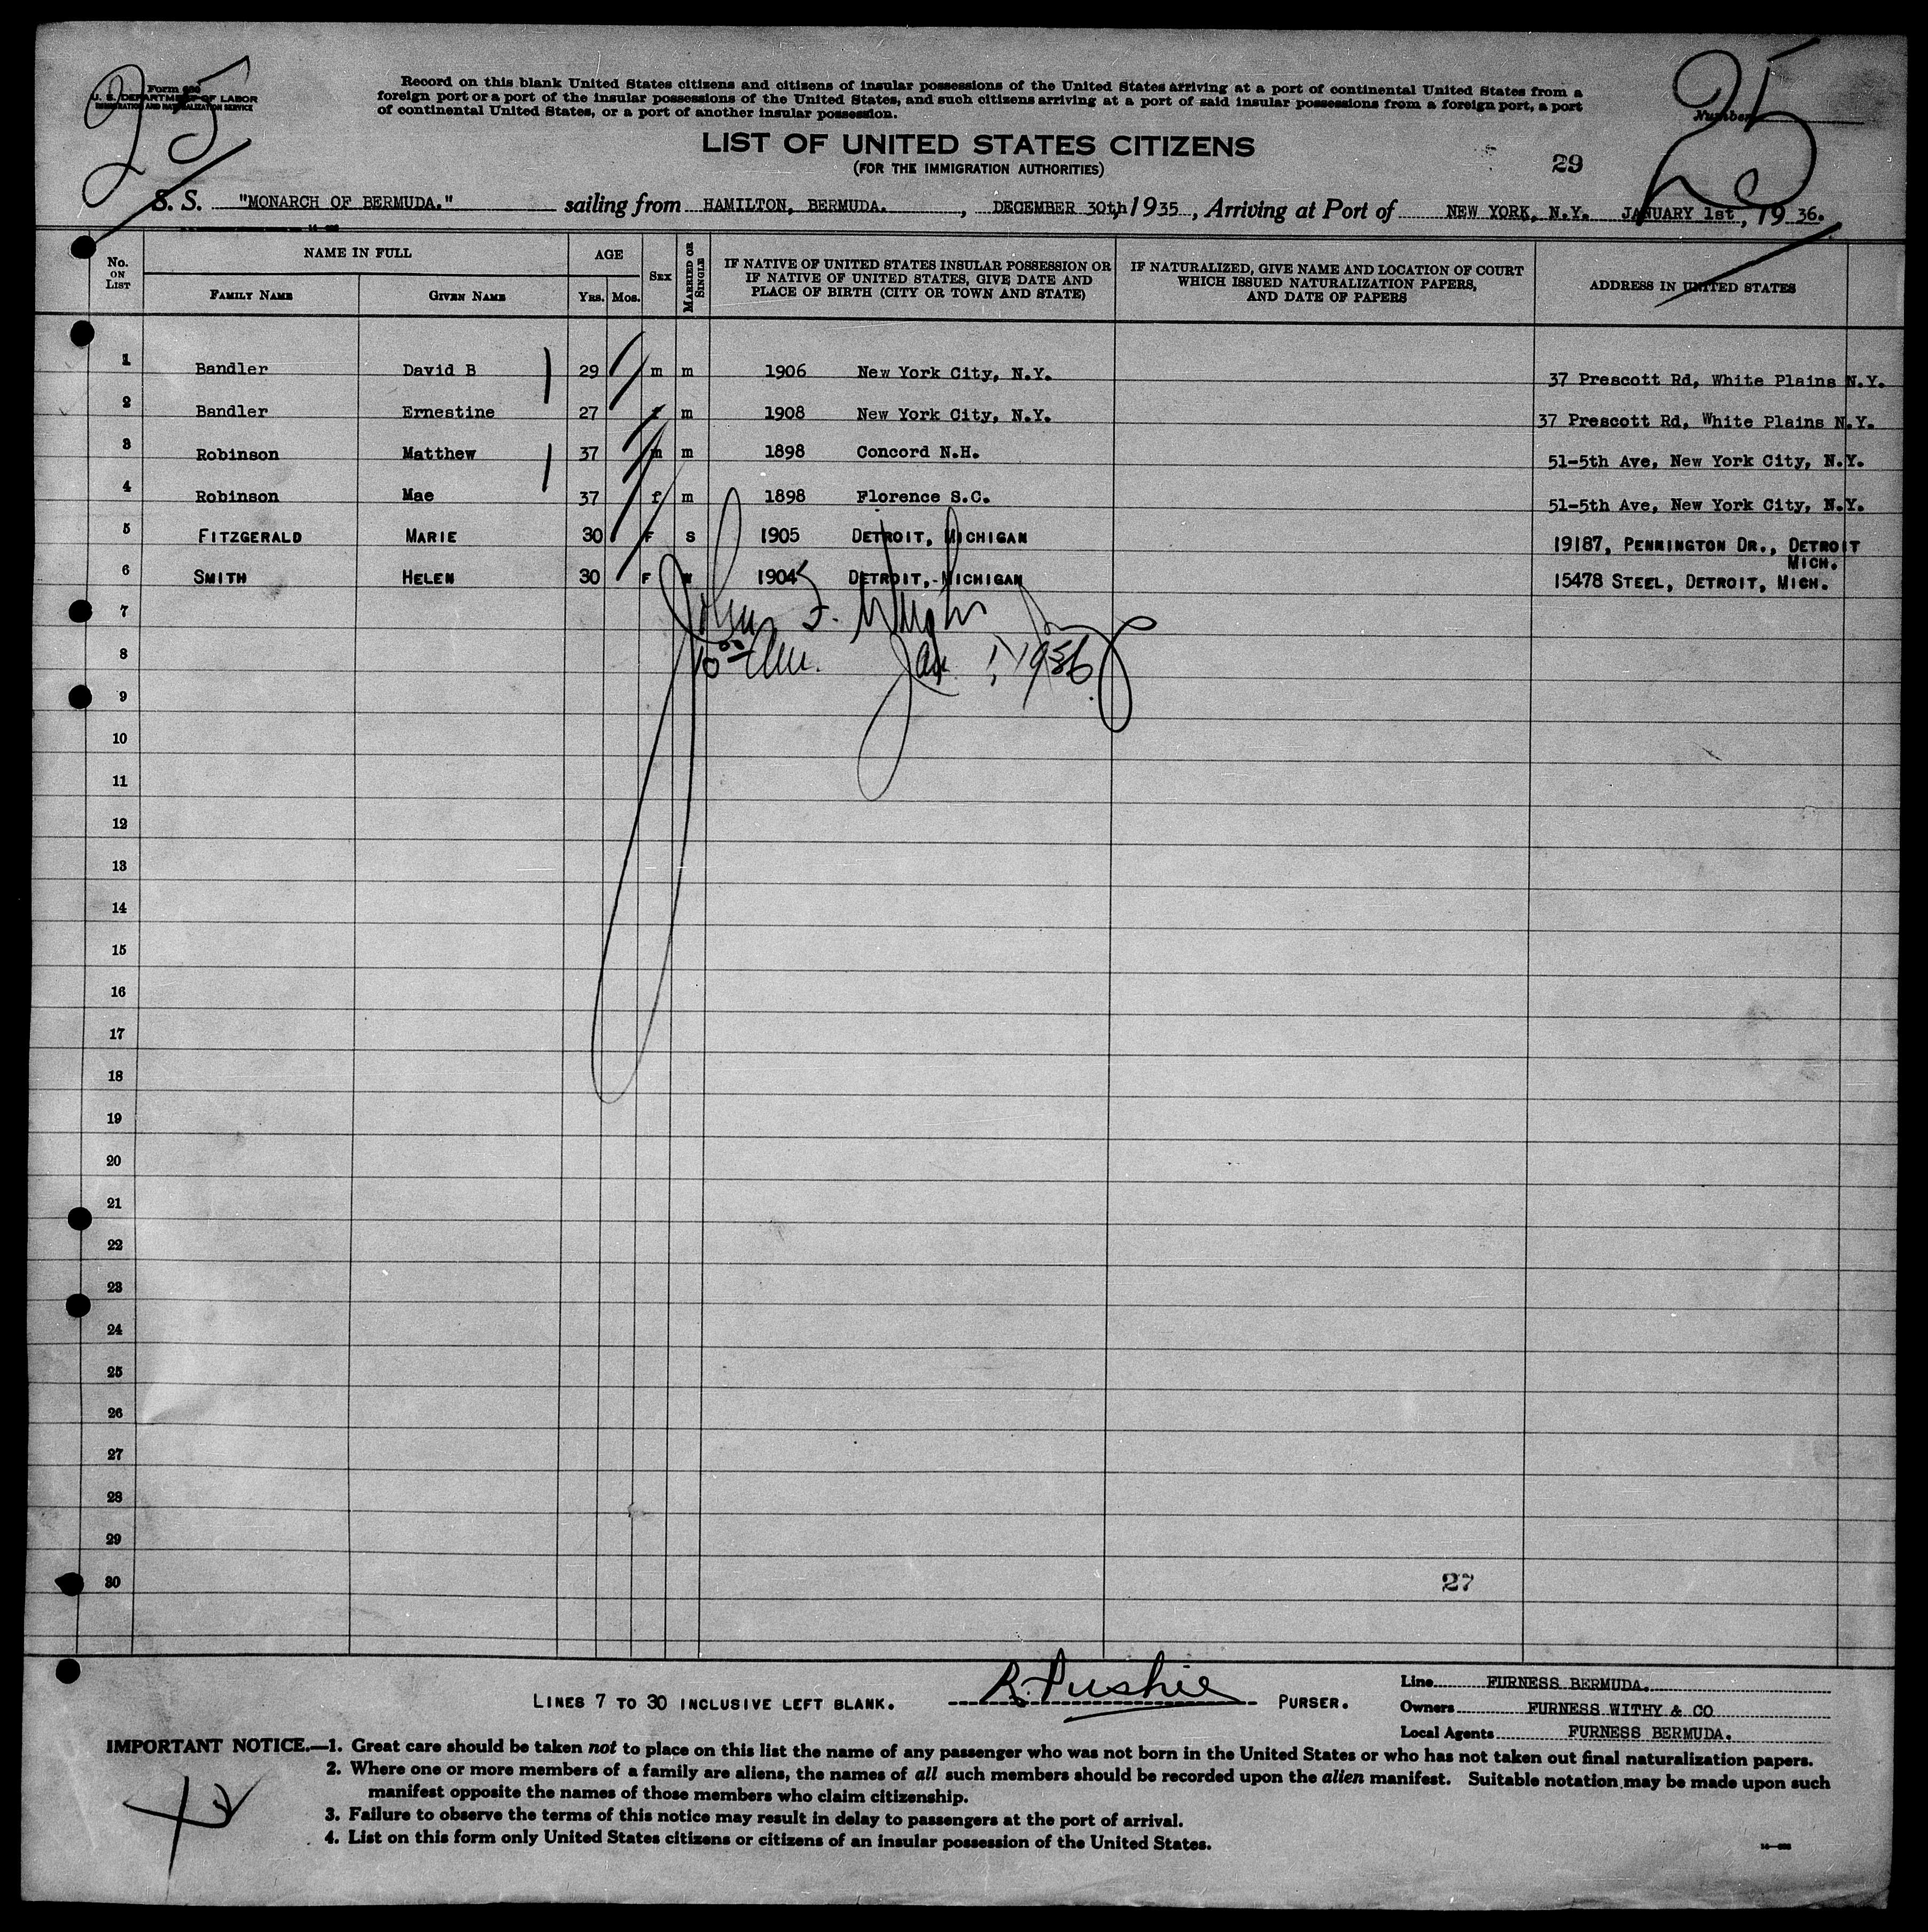 25
25
Form 630
U. S. DEPARTMENT OF LABOR
IMMIGRATION AND NATURALIZATION SERVICE
Record on this blank United States citizens and citizens of insular possessions of the United States arriving at a port of continental United States from a
foreign port or a port of the insular possessions of the United States, and such citizens arriving at a port of said insular possessions from a foreign port, a port
of continental United States, or a port of another insular possession.
Number
LIST OF UNITED STATES CITIZENS
(FOR THE IMMIGRATION AUTHORITIES)
29
S. S. "MONARCH OF BERMUDA." sailing from HAMILTON, BERMUDA. , DECEMBER 30th, 1935 , Arriving at Port of NEW YORK, N.Y. JANUARY 1st, 19 36.
No. ON LIST
NAME IN FULL
FAMILY NAME
GIVEN NAME
AGE
YRS. MOS.
SEX
MARRIED OR SINGLE
IF NATIVE OF UNITED STATES INSULAR POSSESSION OR
IF NATIVE OF UNITED STATES, GIVE DATE AND
PLACE OF BIRTH (CITY OR TOWN AND STATE)
IF NATURALIZED, GIVE NAME AND LOCATION OF COURT
WHICH ISSUED NATURALIZATION PAPERS,
AND DATE OF PAPERS
ADDRESS IN UNITED STATES
1 Bandler David B 29 m m 1906 New York City, N.Y. 37 Prescott Rd, White Plains N.Y.
2 Bandler Ernestine 27 f m 1908 New York City, N.Y. 37 Prescott Rd, White Plains N.Y.
3 Robinson Matthew 37 m m 1898 Concord N.H. 51-5th Ave, New York City, N.Y.
4 Robinson Mae 37 f m 1898 Florence S.C. 51-5th Ave, New York City, N.Y.
5 FITZGERALD MARIE 30 F S 1905 DETROIT, MICHIGAN 19187, PENNINGTON DR., DETROIT MICH.
6 SMITH HELEN 30 F 1904 DETROIT, MICHIGAN 15478 STEEL, DETROIT, MICH.
7 John F.
8 10 00 Am. Jan 1, 1936
9
10
11
12
13
14
15
16
17
18
19
20
21
22
23
24
25
26
27
28
29
30 27
LINES 7 TO 30 INCLUSIVE LEFT BLANK. R. Pushie PURSER.
Line FURNESS BERMUDA.
Owners FURNESS WITHY & CO
Local Agents FURNESS BERMUDA.
IMPORTANT NOTICE.—1. Great care should be taken not to place on this list the name of any passenger who was not born in the United States or who has not taken out final naturalization papers.
2. Where one or more members of a family are aliens, the names of all such members should be recorded upon the alien manifest. Suitable notation may be made upon such
manifest opposite the names of those members who claim citizenship.
3. Failure to observe the terms of this notice may result in delay to passengers at the port of arrival.
4. List on this form only United States citizens or citizens of an insular possession of the United States.